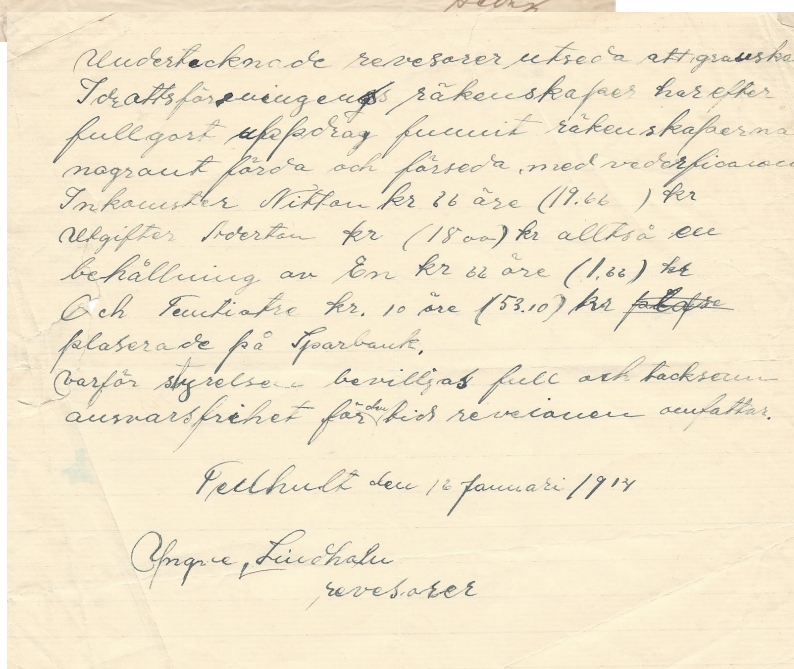 Undertecknade revesorer utseda att granska
Idrattsföreningens räkenskaper har efter
fullgort uppdrag funnit räkenskaperna
nogrant förda och förseda med
Inkomster Nitton kr 66 öre (19.66 ) kr
Utgifter Aderton kr (18 00) kr alltså en
behållning av En kr 66 öre (1.66) kr
Och Femtiotre kr. 10 öre (53.10) kr
plaserade på Sparbank.
varför styrelsen beviljas full och tacksam
ansvarsfrihet för den tid reveionen omfattar.
den 12 Januari 1914
Yngve, Lindholm
revesorer